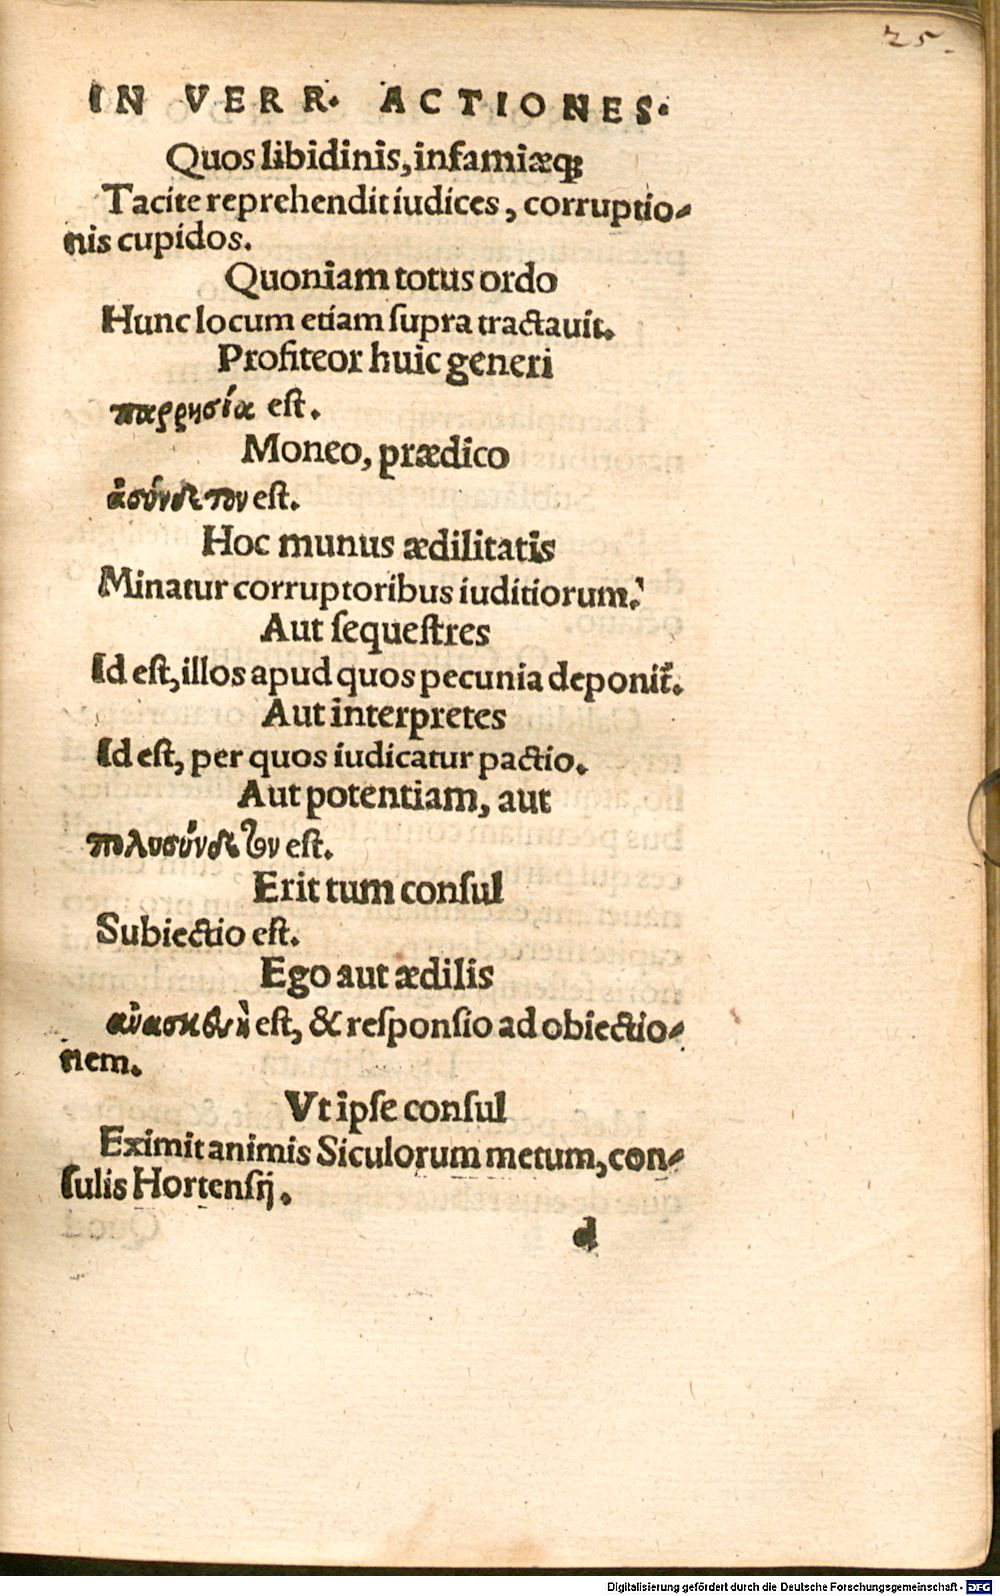 25.
IN VERR. ACTIONES.
Quos libidinis, infamiæq;
Tacite reprehendit iudices, corruptio-
nis cupidos.
Quoniam totus ordo
Hunc locum etiam ſupra tractauit.
Profiteor huic generi
παρρησία eſt.
Moneo, prædico
ἀσύνδετον eſt.
Hoc munus ædilitatis
Minatur corruptoribus iuditiorum.
Aut ſequeſtres
Id eſt, illos apud quos pecunia deponit᷑.
Aut interpretes
Id eſt, per quos iudicatur pactio.
Aut potentiam, aut
πολυσύνδετον eſt.
Erit tum conſul
Subiectio eſt.
Ego aut ædilis
eſt, & reſponſio ad obiectio-
nem.
Vt ipſe conſul
Eximit animis Siculorum metum, con-
ſulis Hortenſij.
d
Digitalisierung gefördert durch die Deutsche Forschungsgemeinschaft - DFG